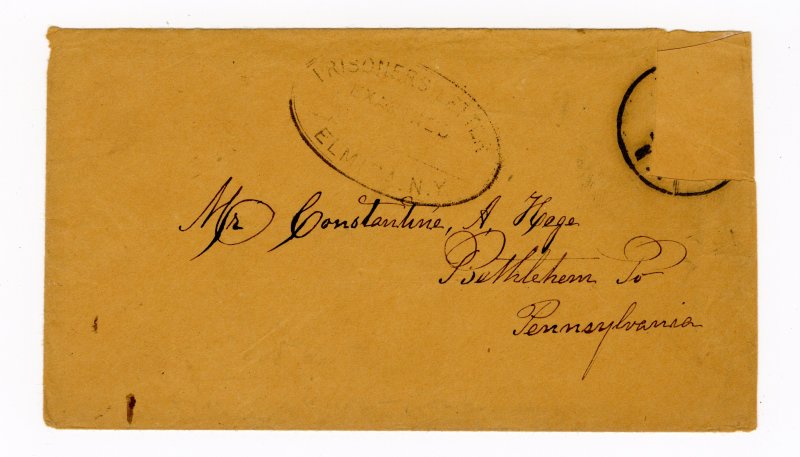 PRISONERS LETTER
EXAMINED
ELMIRA, N.Y.
Mr Constantine, A Hege
Bethlehem Po
Pennsylvania